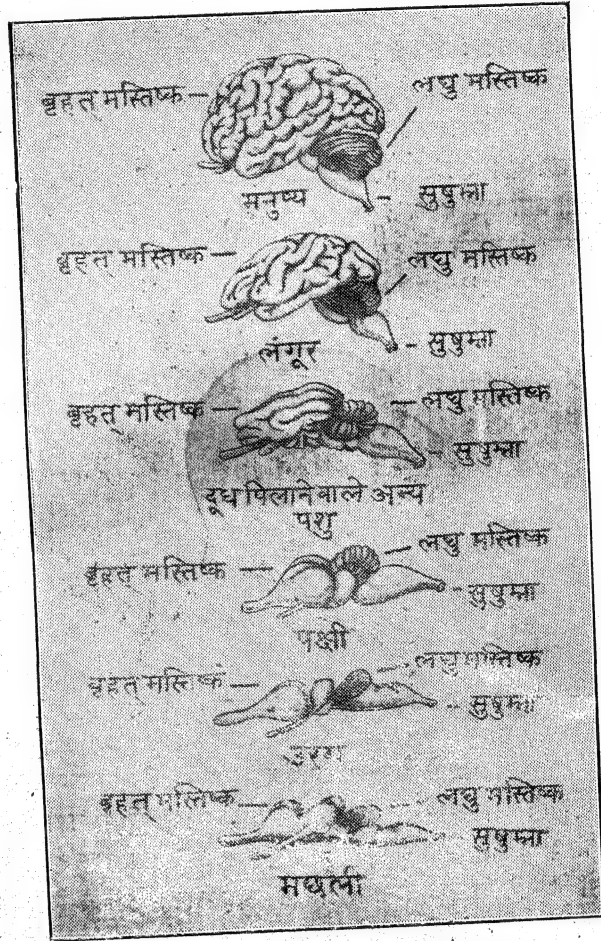 बृहत् मस्तिष्क लघु मस्तिष्क
मनुष्य सुषुम्ना
बृहत् मस्तिष्क लघु मस्तिष्क
लंगूर सुषुम्ना
बृहत् मस्तिष्क लघु मस्तिष्क
सुषुम्ना
दूध पिलानेवाले अन्य
पशु
लघु मस्तिष्क
बृहत् मस्तिष्क
सुषुम्ना
पक्षी
लघु मस्तिष्क
बृहत् मस्तिष्क
सुषुम्ना
उरग
बृहत् मस्तिष्क लघु मस्तिष्क
सुषुम्ना
मछली